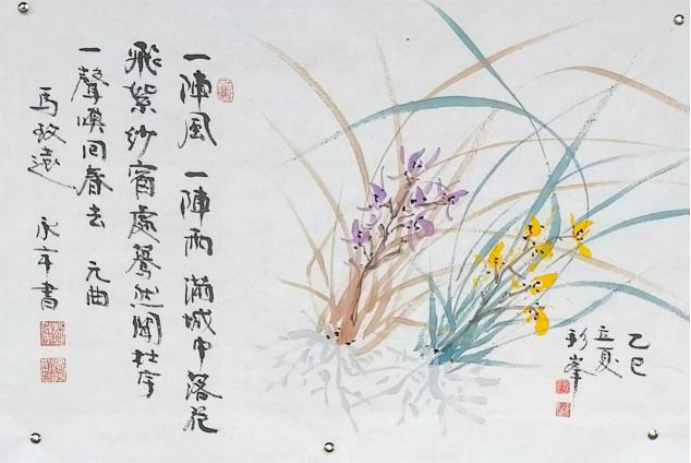 乙巳
立夏
彩峯
一陣風一陣雨滿城中落花
飛絮紗窗處驀然聞杜宇
一聲喚回春去 元曲
馬致遠 永年書